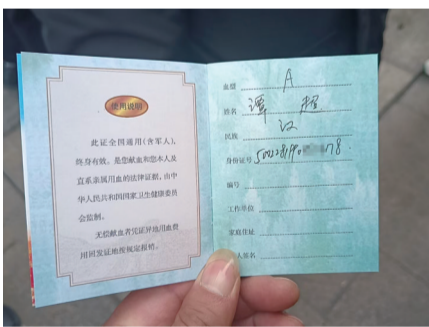 使用说明
此证全国通用(含军人),
终身有效。是您献血和您本人及
直系亲属用血的法律证据,由中
华人民共和国国家卫生健康委员
会监制。
无偿献血者凭证异地用血费
用回发证地按规定报销。
血型 A
姓名 谭 超
民族 汉
身份证号
编号
工作单位
家庭住址
人签名